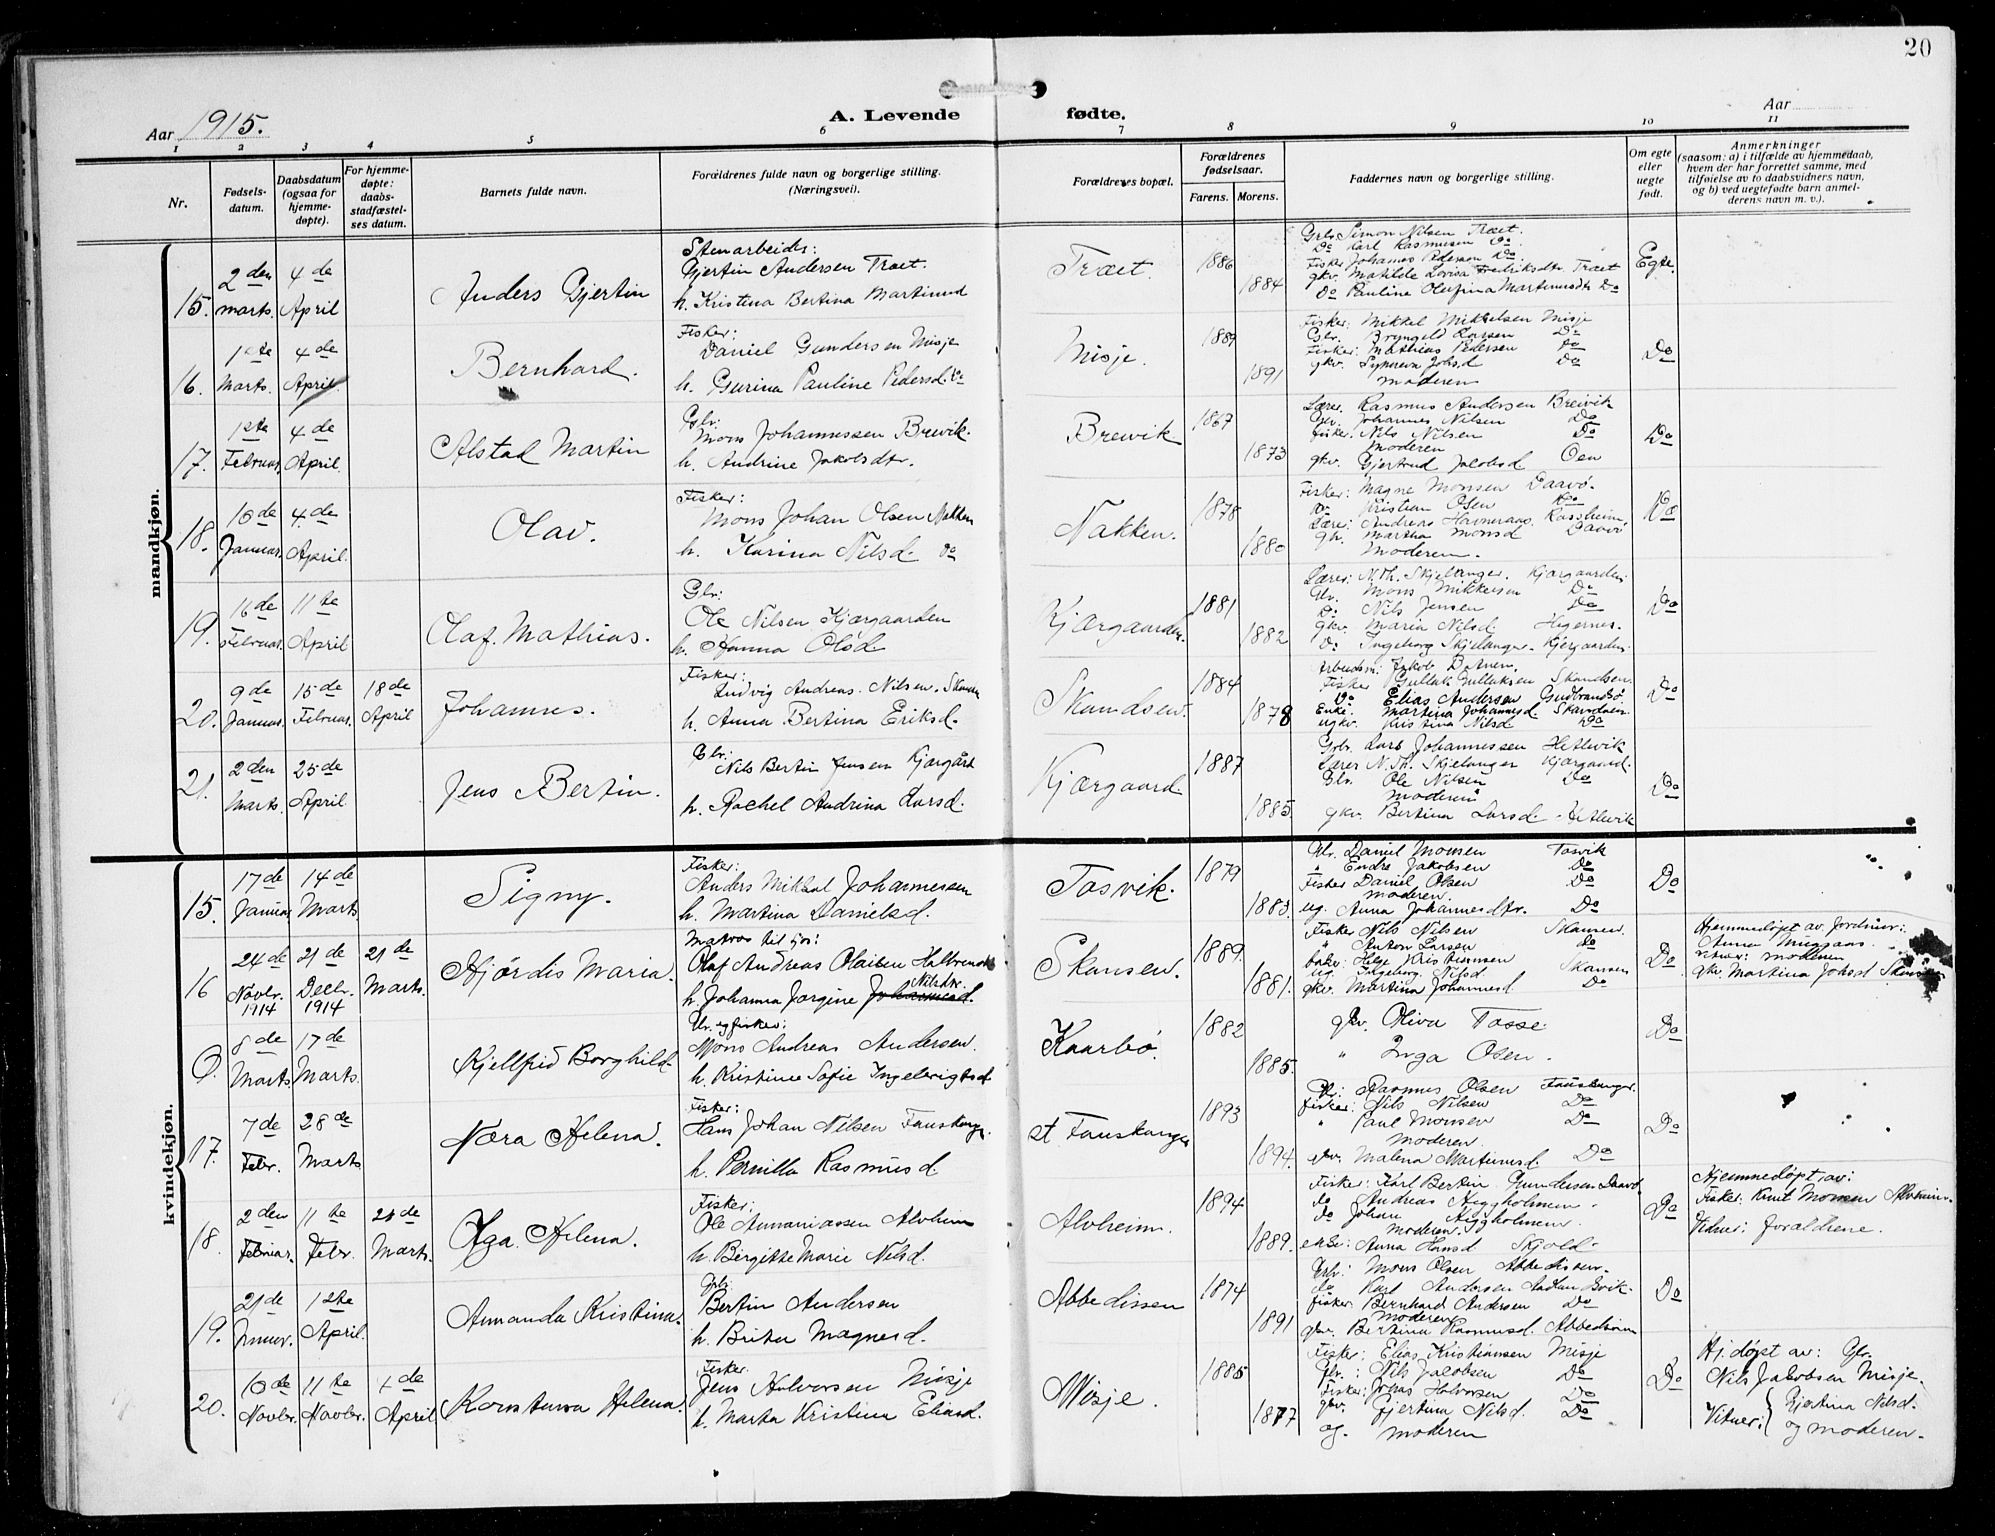 20
Aar 1915.
A. Levende fødte.
Aar
1 2 3 4 5 6 7 8 9 10 11
Nr.
Fødsels-
datum.
Daabsdatum
(ogsaa for
hjemme-
døpte).
For hjemme-
døpte:
daabs-
stadfæstel-
ses datum.
Barnets fulde navn.
Forældrenes fulde navn og borgerlige stilling.
(Næringsvei).
Forældrenes bopæl.
Forældrenes
fødselsaar.
Farens. Morens.
Faddernes navn og borgerlige stilling.
Om egte
eller
uegte
født.
Anmerkninger
(saasom: a) i tilfælde av hjemmedaab,
hvem der har forrettet samme, med
tilføielse av to daabsvidners navn,
og b) ved uegtefødte barn anmel-
derens navn m. v.).
mandkjøn.
15.
2den
marts.
4de
April
Anders Gjertin
Stenarbeider:
Gjertin Andersen Træet.
h. Kristina Bertina Martinusd
Træet.
1886
1884
Grbr. Simon Nilsen Træet.
Do Karl Rasmusen Do
Fisker Johannes Pedersen Do
gkv. Matilde Lovisa Fredriksdtr. Træet
Do Pauline Olufina Martinusdtr Do
Egte.
16.
1ste
Marts.
4de
April.
Bernhard.
Fisker:
Daniel Gundersen Misje
h. Gurina Pauline Pedersd. Do
Misje.
1889
1891
Fisker: Mikkel Mikkelsen Misje
Gbr. Bryngeld Larsen Do
Fisker: Mathias Pedersen Do
gkv. Synneva Johsd Do
moderen
Do
17.
1ste
Februar.
4de
April.
Alstad Martin
Gbr.
Mons Johannessen Brevik.
h. Andrine Jakobsdtr.
Breivik
1867
1873
Lærer. Rasmus Andersen Breivik
Gbr. Johannes Nilsen Do
fisker. Nils Nilsen Do
moderen
gkv. Gjertrud Jacobsd Oen
Do
18.
10de
Januar.
4de
April.
Olav.
Fisker:
Mons Johan Olsen Nakken
h. Karina Nilsd. Do
Nakken.
1878
1880
Fisker: Magne Monsen Daavø.
Do Kristian Olsen Do
Lærer: Andreas Havneraas. Rossheim
gh. Martha Monsd Daavø
Moderen.
Do
19.
16de
Februar.
11te
April
Olaf Mathias.
Gbr:
Ole Nilsen Kjærgaarden
h. Hanna Olsd.
Kjærgaarden.
1881
1882
Lærer: N. Th. Skjelanger. Kjærgaarden.
Gbr. Mons Mikkelsen Do
Do Nils Jensen Do
gkv. Maria Nilsd. Hjernes.
Do Ingeborg Skjelanger. Kjergaarden.
Do
20.
9de
Januar.
15de
Februar.
18de
April
Johannes.
Fisker:
Ludvig Andreas Nilsen. Skansen
h. Anna Bertina Eriksd.
Skandsen.
1884
1878
Fisker Gullak Gulliksen Skandsen.
Do Elias Andersen Gudbrandsø
Enke. Martina Johannesd. Skandsen.
ugkv. Kristina Nilsd Do
Do
21.
2den
Marts.
25de
April.
Jens Bertin.
Gbr.
Nils Bertin Jensen Kjærgård
h. Rachel Andrina Larsd.
Kjærgaard.
1887
1885.
Gbr. Lars Johannessen Hetlevik
Lærer N. Th. Skjelanger Kjærgaard.
Gbr. Ole Nilsen Do
Moderen
gkv. Bertina Larsd. Hetlevik
Do
kvindekjøn.
15.
17de
Januar
14de
Marts
Signy.
Fisker:
Anders Mikkal Johannessen
h. Martina Danielsd.
Tosvik.
1879
1883.
Gbr. Daniel Monsen Tosvik
" Endre Jakobsen Do
Fisker Daniel Olsen Do
moderen.
ug. Anna Johannesdtr. Do
Do
16
24de
Novbr.
1914
21de
Decbr.
1914
21de
Marts.
Hjørdis Maria.
Matros til sjøs:
Olaf Andreas Olaisen
h. Johanna Jørgine Johannesd. Nilsdtr.
Skansen.
1889.
1881.
Fisker Nils Nilsen Skansen.
" Anton Larsen Do
ug. Ingeborg Nilsd Skansen
gkv. Martina Johannesd. Do
Do
Hjemmedøpt av Jordmor:
Anna
Vitner: moderen
gkv. Martina Johsd
0.
8de
Marts
17de
Marts.
Kjellfrid Borghild.
Gbr. og fisker:
Mons Andreas Andersen.
h. Kristine Sofie Ingebrigtsd
Kaarbø.
1882
1885.
gkv. Oliva Tosse.
" Inga Osen.
Do
17.
7de
Febr.
28de
Marts
Nora Helena.
Fisker:
Hans Johan Nilsen Fauskanger.
h. Pernilla Rasmusd
et Fauskanger
1893
1894.
Gbr: Rasmus Olsen Fauskanger.
fisker: Nils Nilsen Do
" Paul Monsen Do
Moderen.
gkv. Malena Martinusd. Do
Do
18.
2den
Februar.
11te
Febr.
21de
Marts.
Olga Helena.
Fisker:
Ole Ananiassen Alvheim
h. Bergitte Marie Nilsd.
Alvheim.
1894
1889.
Fisker: Karl Bertin Gundersen Daavø
do Andreas Æggholmen.
do Johan Æggholmen.
Moderen.
enke: Anna Hansd Skjold.
Do
Hjemmedøpt, av:
Fisker: Knut Monsen Alvheim.
Vidner: forældrene.
19.
21de
Januar.
1ste
April.
Amanda Kristina.
Gbr.
Bertin Andersen
h. Brita Magnesd.
Abbedissen
1874
1891
Gbr: Mons Olsen Abbedissen.
do Karl Andersen
fisker. Bernhard Andersen Do
Moderen
gkv. Bertina Rasmusd. Abbedissen
Do
20.
10de
Novbr.
11te
Novbr.
4de
April
Konstansa Helena.
Fisker
Jens Halvorsen Misje
h. Marta Kristina Eliasd.
Misje.
1885
1877
Fisker: Elias Kristiansen Misje
Gbr.: Nils Jacobsen Do
Fisker: Johas Halvorsen Do
gkv. Gjertina Nilsd. Do
og moderen
Do
Hj.døpt av: Gbr.
Nils Jakobsen Misje.
Vitner: Gjertina Nilsd.
og moderen.